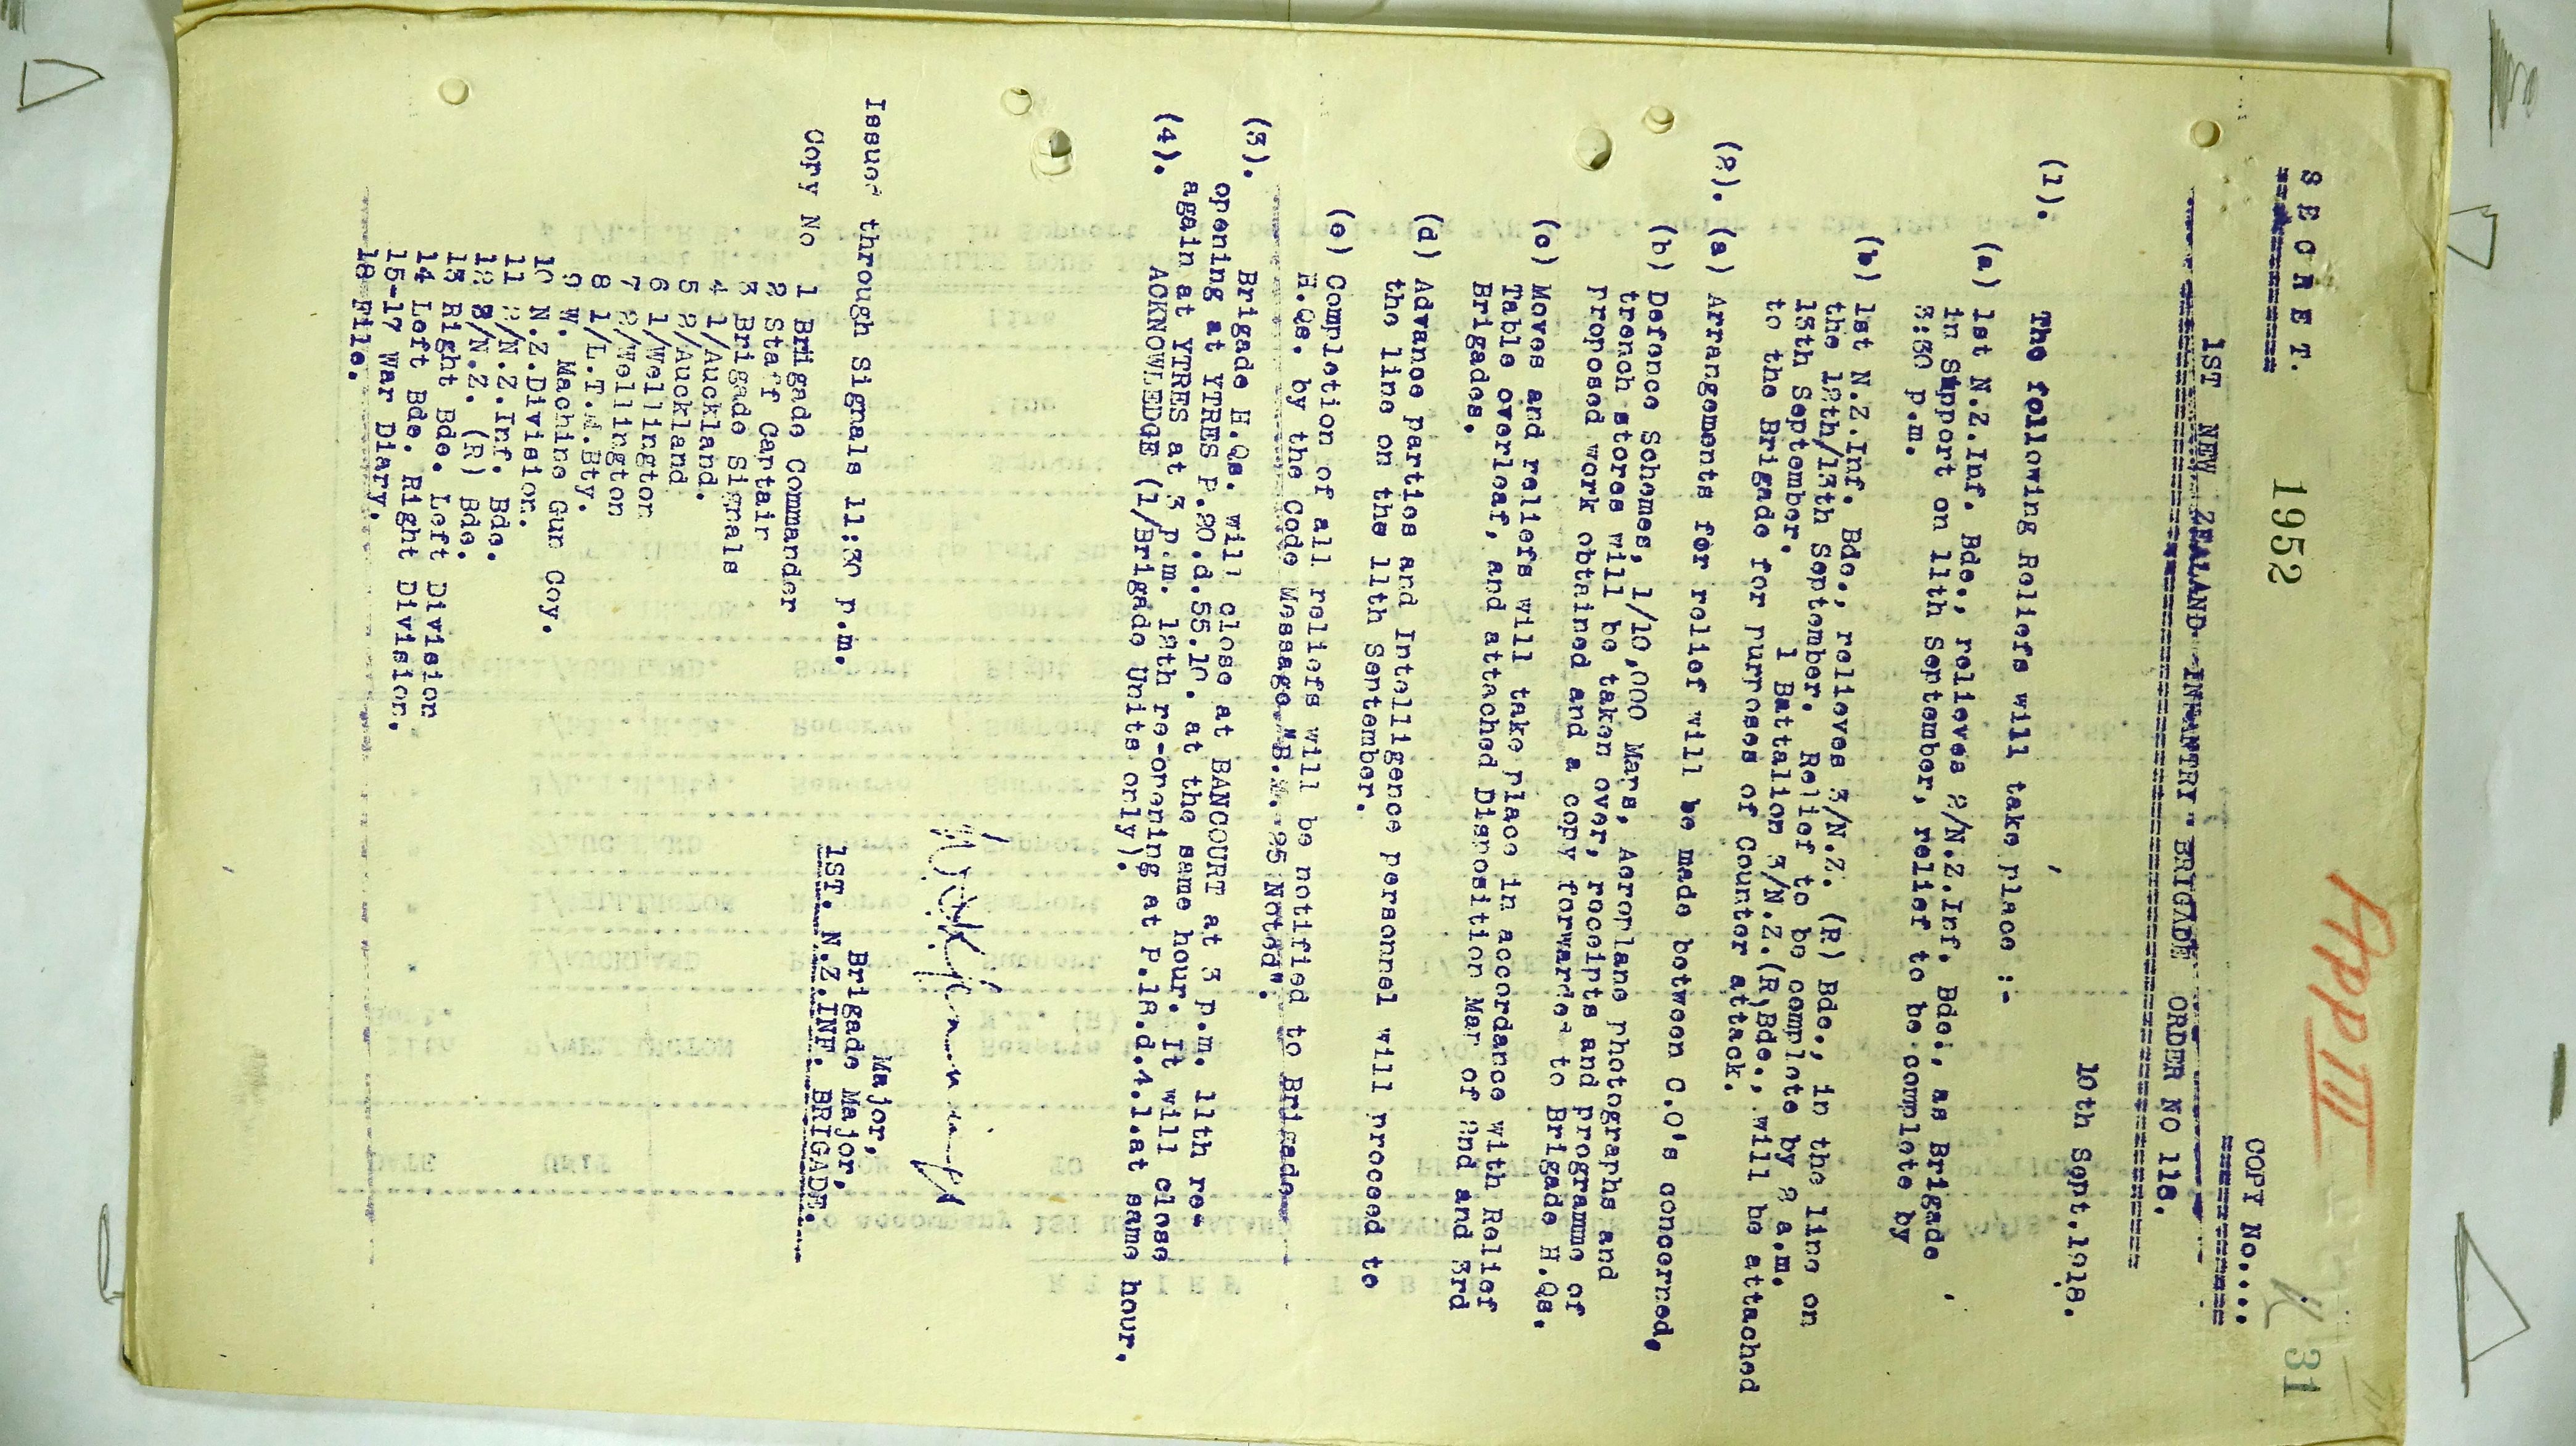 App III
S E C R E T.
1952
COPY No.....
31
1ST NEW ZEALAND INFANTRY BRIGADE ORDER NO 118.
10th Sept.1918.
(1). The following Reliefs will take place :-
(a) 1st N.Z.Inf. Bde., relieves 2/N.Z.Inf. Bde., as Brigade
in Support on 11th September, relief to be complete by
3:30 p.m.
(b) 1st N.Z.Inf. Bde., relieves 3/N.Z. (R) Bde., in the line on
the 12th/13th September. Relief to be complete by 2 a.m.
13th September. 1 Battalion 3/N.Z.(R)Bde., will be attached
to the Brigade for purposes of Counter attack.
(2). (a) Arrangements for relief will be made between C.O's concerned,
(b) Defence Schemes, 1/10,000 Maps, Aeroplane photographs and
trench stores will be taken over, receipts and programme of
proposed work obtained and a copy forwarded to Brigade H.Qs.
(c) Moves and reliefs will take place in accordance with Relief
Table overleaf, and attached Disposition Map of 2nd and 3rd
Brigades.
(d) Advance parties and Intelligence personnel will proceed to
the line on the 11th September.
(e) Completion of all reliefs will be notified to Brigade
H.Qs. by the Code Message "B.M. 25 Noted".
(3). Brigade H.Qs. will close at BANCOURT at 3 p.m. 11th re-
opening at YTRES P.20.d.55.10. at the same hour. It will close
again at YTRES at 3 p.m. 12th re-opening at P.18.d.4.1.at same hour.
(4). ACKNOWLEDGE (1/Brigade Units only).
Major,
Brigade Major,
1ST. N.Z.INF. BRIGADE.
Issued through Signals 11:30 p.m.
Copy No 1 Brigade Commander
2 Staff Captain
3 Brigade Signals
4 1/Auckland.
5 2/Auckland
6 1/Wellington
7 2/Wellington
8 1/L.T.M.Bty.
9 W. Machine Gun Coy.
10 N.Z.Division.
11 2/N.Z.Inf. Bde.
12 3/N.Z. (R) Bde.
13 Right Bde. Left Division
14 Left Bde. Right Division.
15-17 War Diary.
18 File.